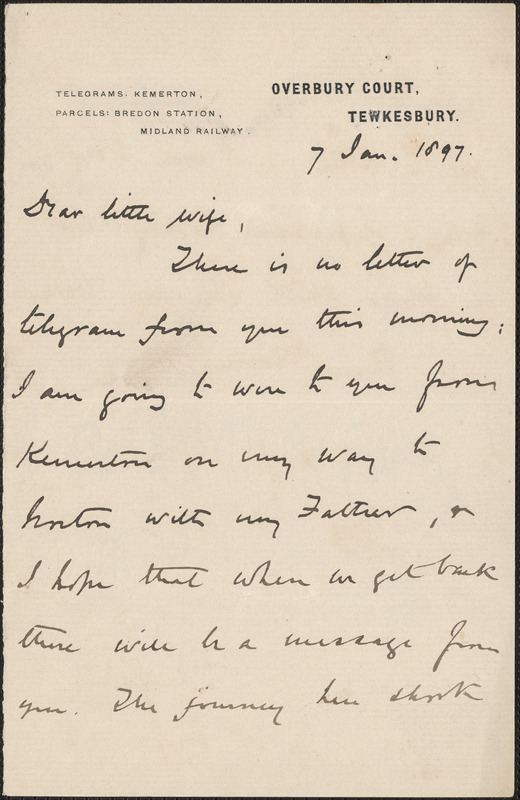 TELEGRAMS: KEMERTON,
PARCELS: BREDON STATION,
MIDLAND RAILWAY.
OVERBURY COURT,
TEWKESBURY.
7 Jan. 1897.
Dear little wife,
There is no letter or
telegram from you this morning:
I am going to wire to you from
Kemerton on my way to
Norton with my Father, so
I hope that when we get back
there will be a message from
you. The journey here shook